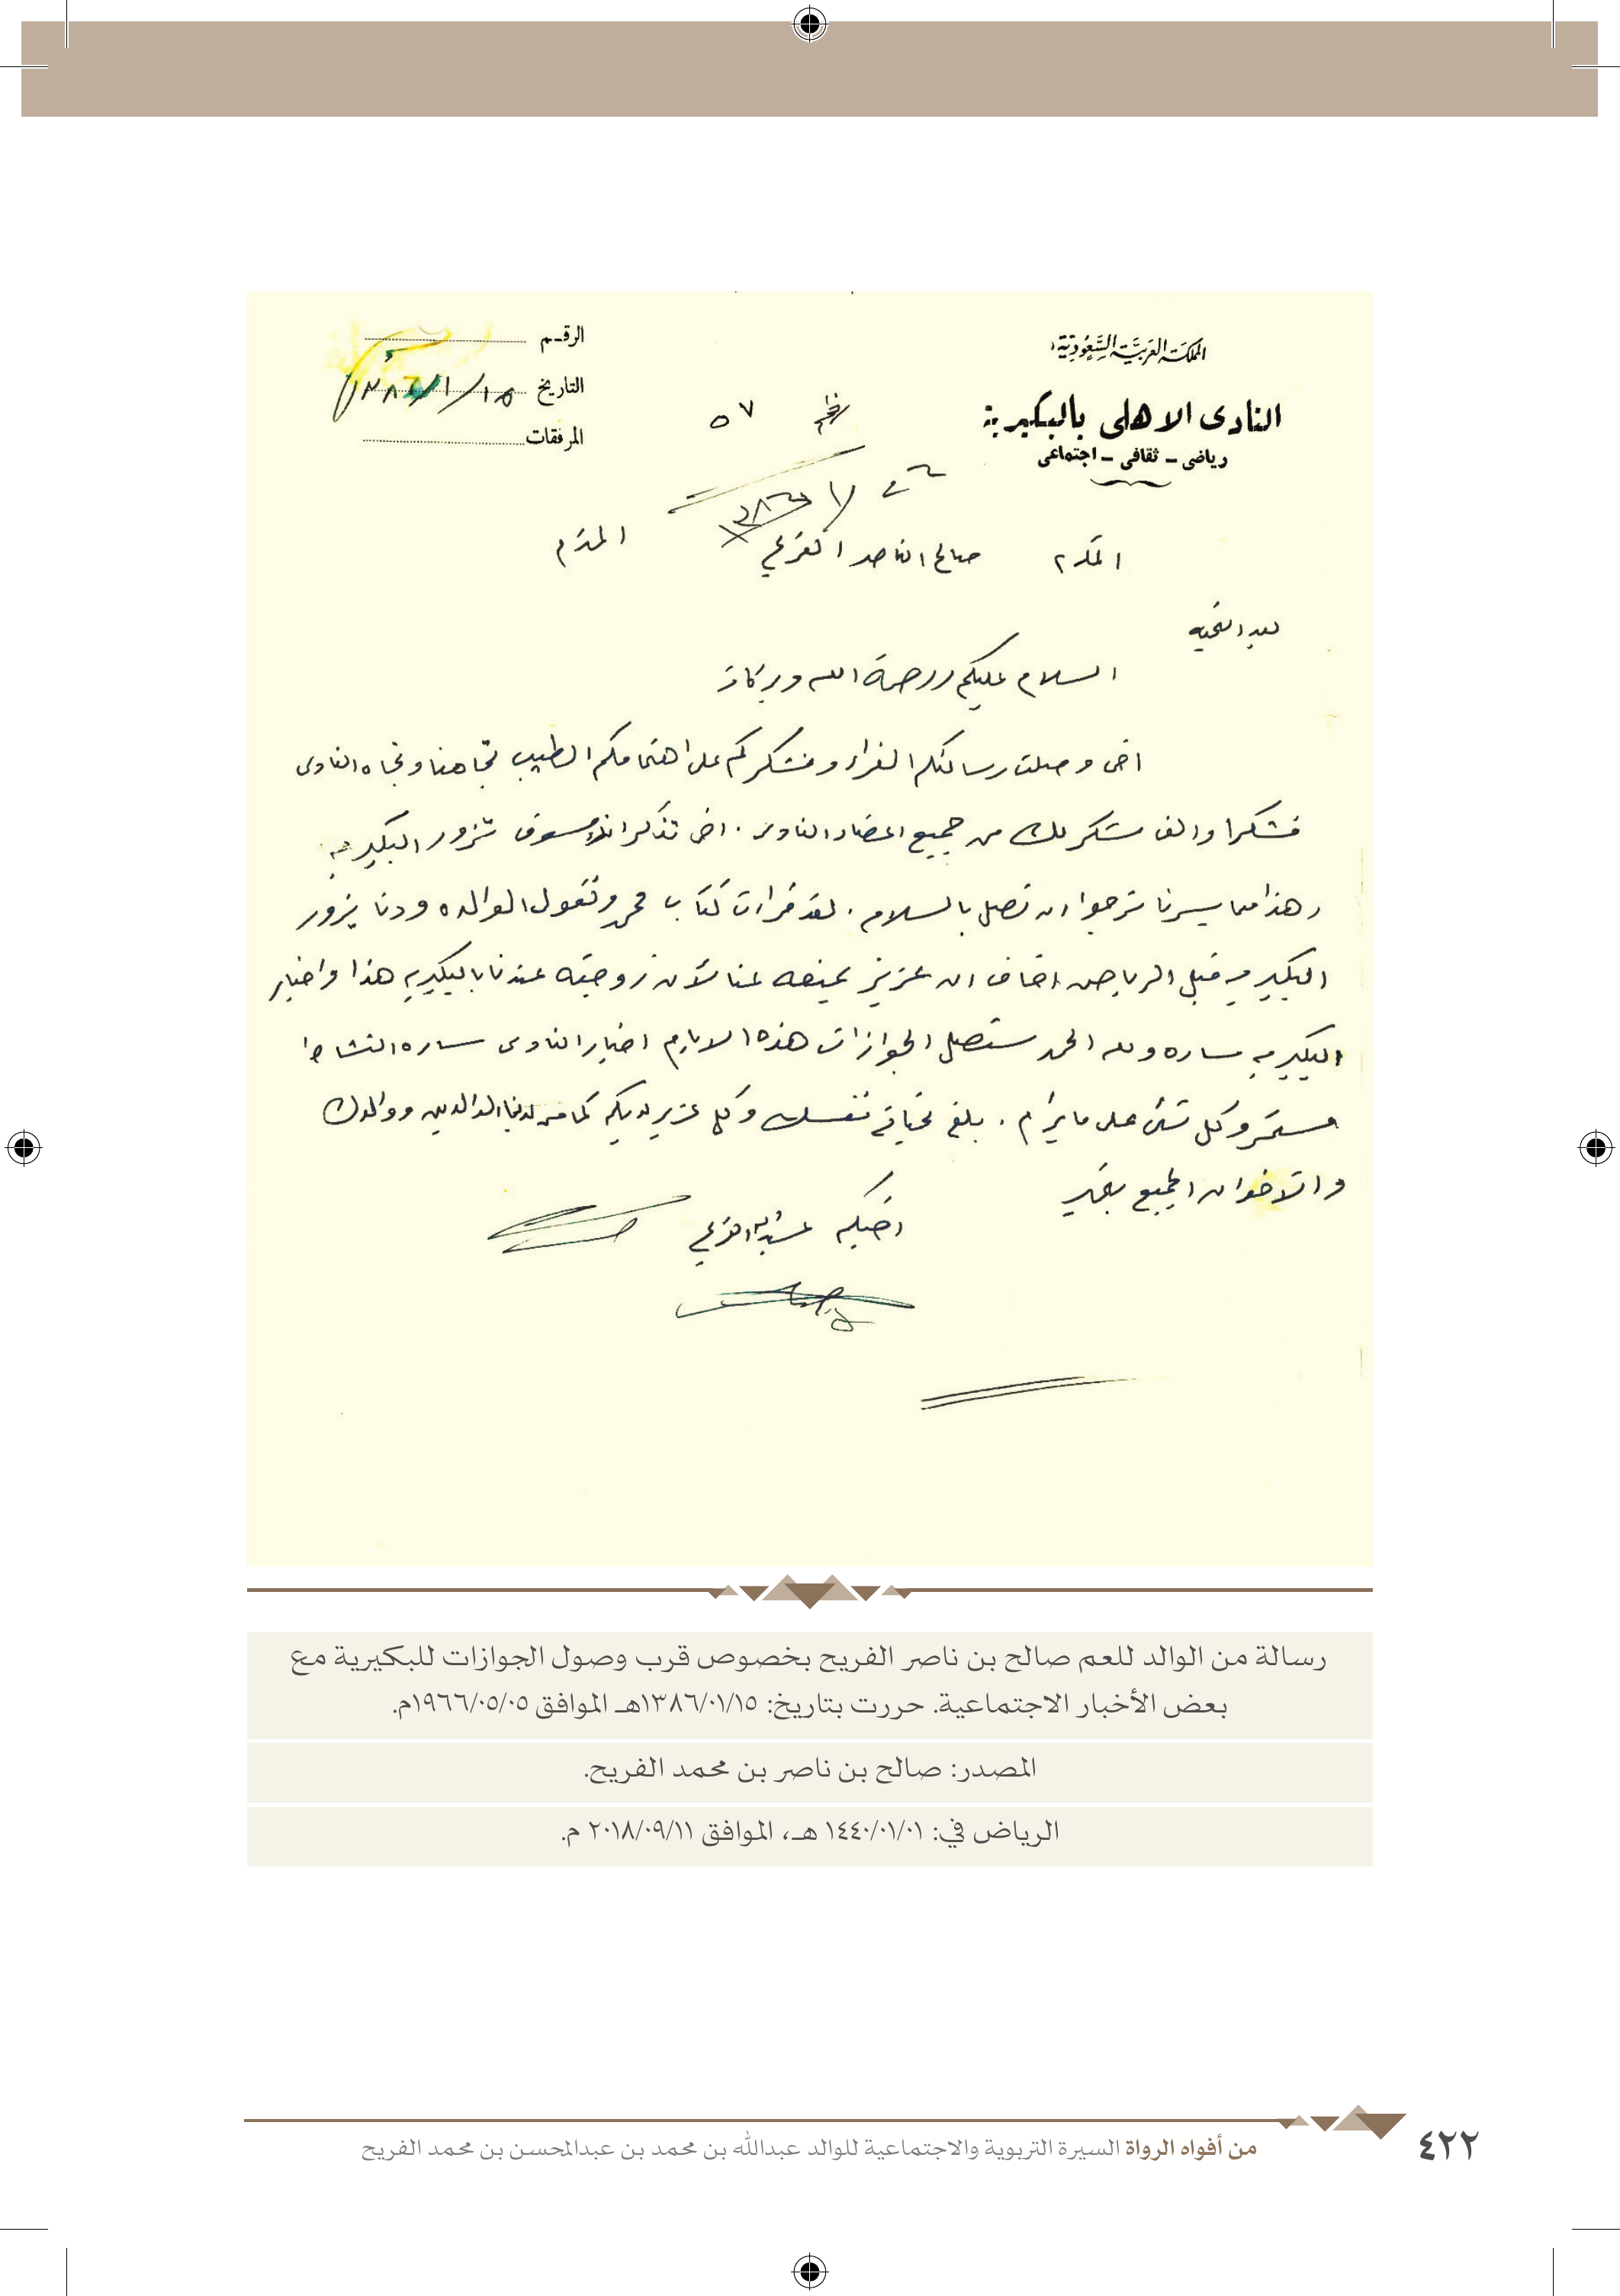 المملكة العربية السعودية
النادى الاهلى بالبكيرية
رياضى – ثقافى – اجتماعى
الرقـم
التاريخ ١٥/ ١/ ١٣٨٦
المرفقات
٥٧
المكرم صالح الناصر الفريح المحترم
بعد التحيه
السلام عليكم ورحمة الله وبركاته
اخى وصلت رسالتكم الغراء ونشكركم على اهتمامكم الطيب تجاهنا وتجاه النادى
فشكرا والف شكر لك من جميع اعضاء النادى . اخى تذكر انك سوف تزور البكيريه
وهذا مما يسرنا نرجوا ان تصل بالسلامه . لقد قرات كتاب محمد وتقول الوالده ودنا يزور
البكيريه قبل الرياض اخاف ان عزيز يمنعه عنا لأن زوجته عندنا بالبكيريه هذا واخبار
البكيريه ساره ولله الحمد ستصل الجوازات هذه الايام اخبار النادى ساره النشاط
مستمر وكل شئ على مايرام . بلغ تحياتى نفسك وكل عزيز لديكم كما من لدينا الوالدين ووالدك
والاخوان الجميع بخير
اخيكم عبدالله الفريح
رسالة من الوالد للعم صالح بن ناصر الفريح بخصوص قرب وصول الجوازات للبكيرية مع
بعض الأخبار الاجتماعية. حررت بتاريخ: ١٣٨٦/٠١/١٥هـ الموافق ١٩٦٦/٠٥/٠٥م.
المصدر: صالح بن ناصر بن محمد الفريح.
الرياض في: ١٤٤٠/٠١/٠١ هـ، الموافق ٢٠١٨/٠٩/١١ م.
من أفواه الرواة السيرة التربوية والاجتماعية للوالد عبدالله بن محمد بن عبدالمحسن بن محمد الفريح
٤٢٢